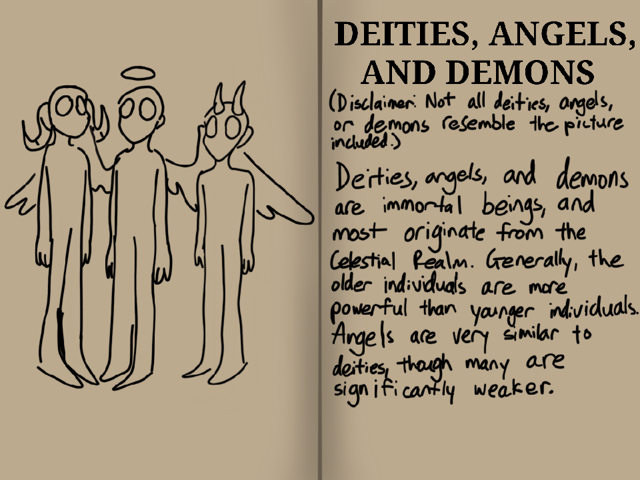 DEITIES, ANGELS,
AND DEMONS
(Disclaimer: Not all deities, angels,
or demons resemble the picture
included.)
Deities, angels, and demons
are immortal beings, and
most originate from the
Celestial Realm. Generally, the
older individuals are more
powerful than younger individuals.
Angels are very similar to
deities, though many are
significantly weaker.